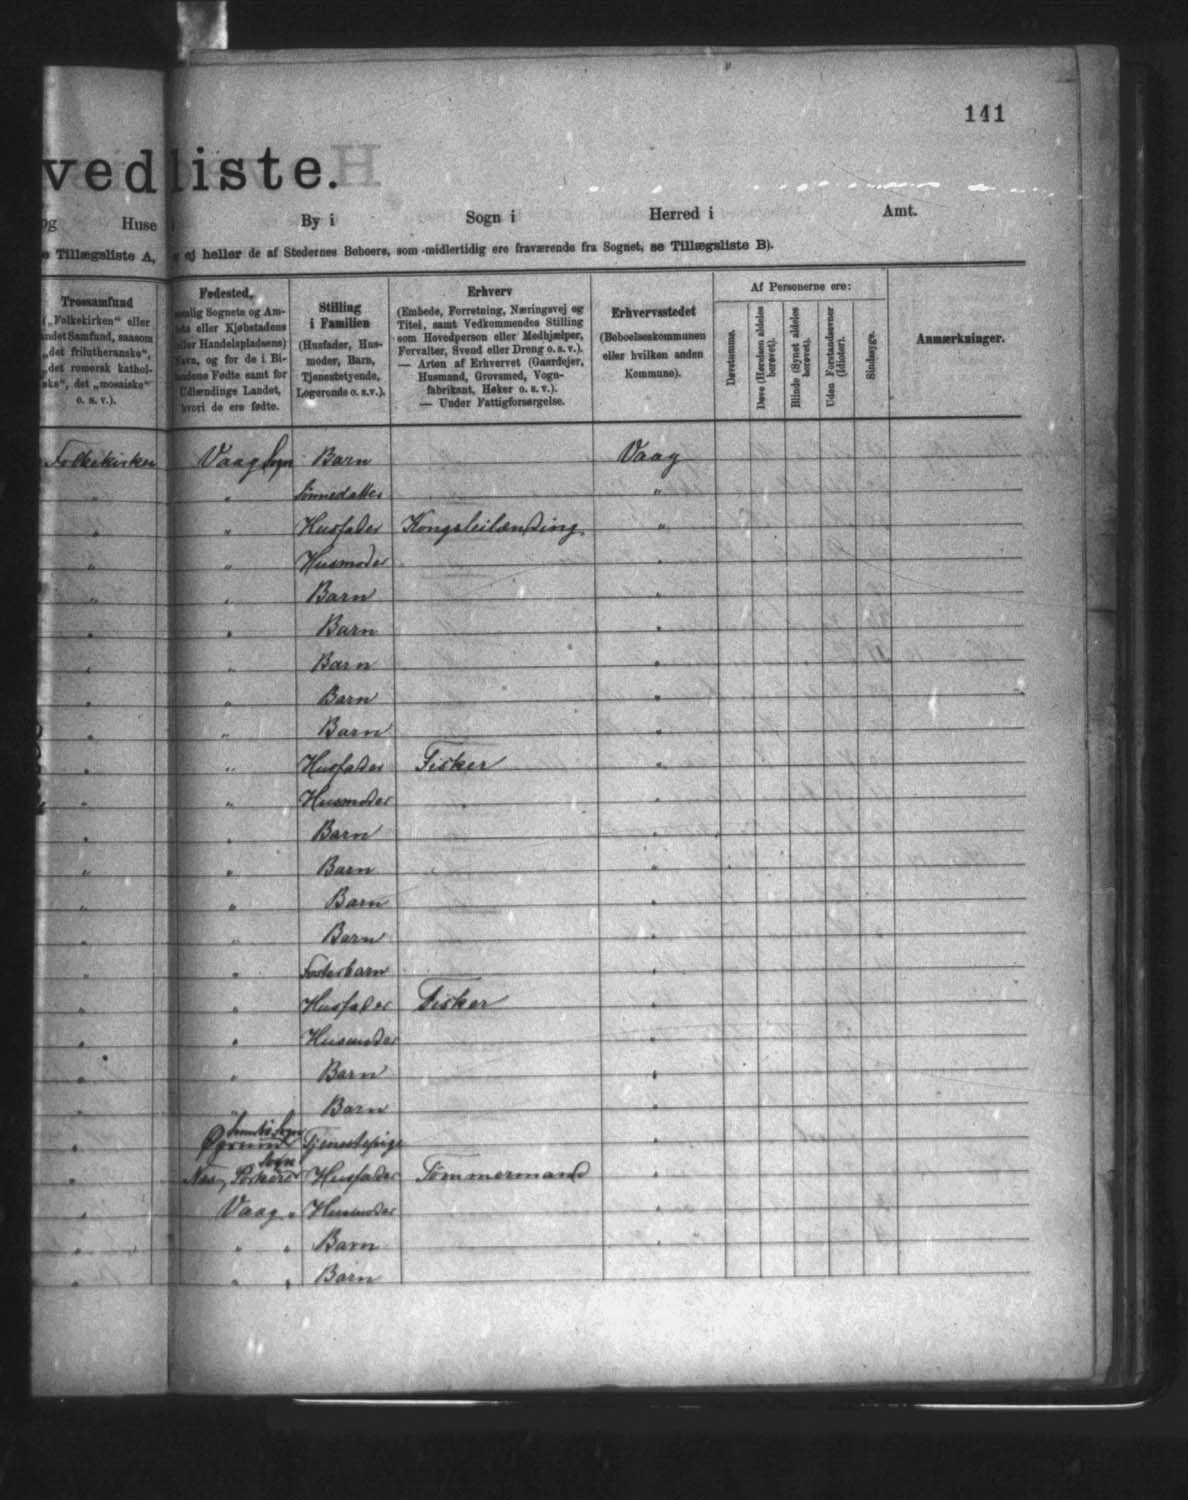 141
vedliste.
og Huse i By i Sogn i Herred i Amt.
e Tillægsliste A, ej heller de af Stedernes Beboere, som midlertidig ere fraværende fra Sognet, se Tillægsliste B).
Trossamfund
(„Folkekirken“ eller
andet Samfund, saasom
„det frilutheranske“,
„det romersk kathol-
ske“, det „mosaiske“
o. s. v.).
Fødested,
nemlig Sognets og Am-
tets eller Kjøbstadens
eller Handelspladsens)
Navn, og for de i Bi-
landene Fødte samt for
Udlændinge Landet,
hvori de ere fødte.
Stilling
i Familien
(Husfader, Hus-
moder, Barn,
Tjenestetyende,
Logerende o. s. v.).
Erhverv
(Embede, Forretning, Næringsvej og
Titel, samt Vedkommendes Stilling
som Hovedperson eller Medhjælper,
Forvalter, Svend eller Dreng o. s. v.).
— Arten af Erhvervet (Gaardejer,
Husmand, Grovsmed, Vogn-
fabrikant, Høker o. s. v.).
— Under Fattigforsørgelse.
Erhvervsstedet
(Beboelseskommunen
eller hvilken anden
Kommune).
Af Personerne ere:
Døvstumme.
Døve (Hørelsen aldeles
berøvet).
Blinde (Synet aldeles
berøvet).
Uden Forstandsevner
(Idioter).
Sindssyge.
Anmærkninger.
Folkekirken Vaag Sogn Barn Vaag
" " Sønnedatter "
" " Husfader Kongsleilænding. "
" " Husmoder "
" " Barn "
" " Barn "
" " Barn "
" " Barn "
" " Barn "
" " Husfader Fisker "
" " Husmoder "
" " Barn "
" " Barn "
" " Barn "
" " Barn "
" " Fosterbarn "
" " Husfader Fisker "
" " Husmoder "
" " Barn "
" " Barn "
" Sogn Tjenestepige "
" Næs, Porkere Sogn Husfader Tømmermand "
" Vaag " Husmoder "
" " " Barn "
" " " Barn